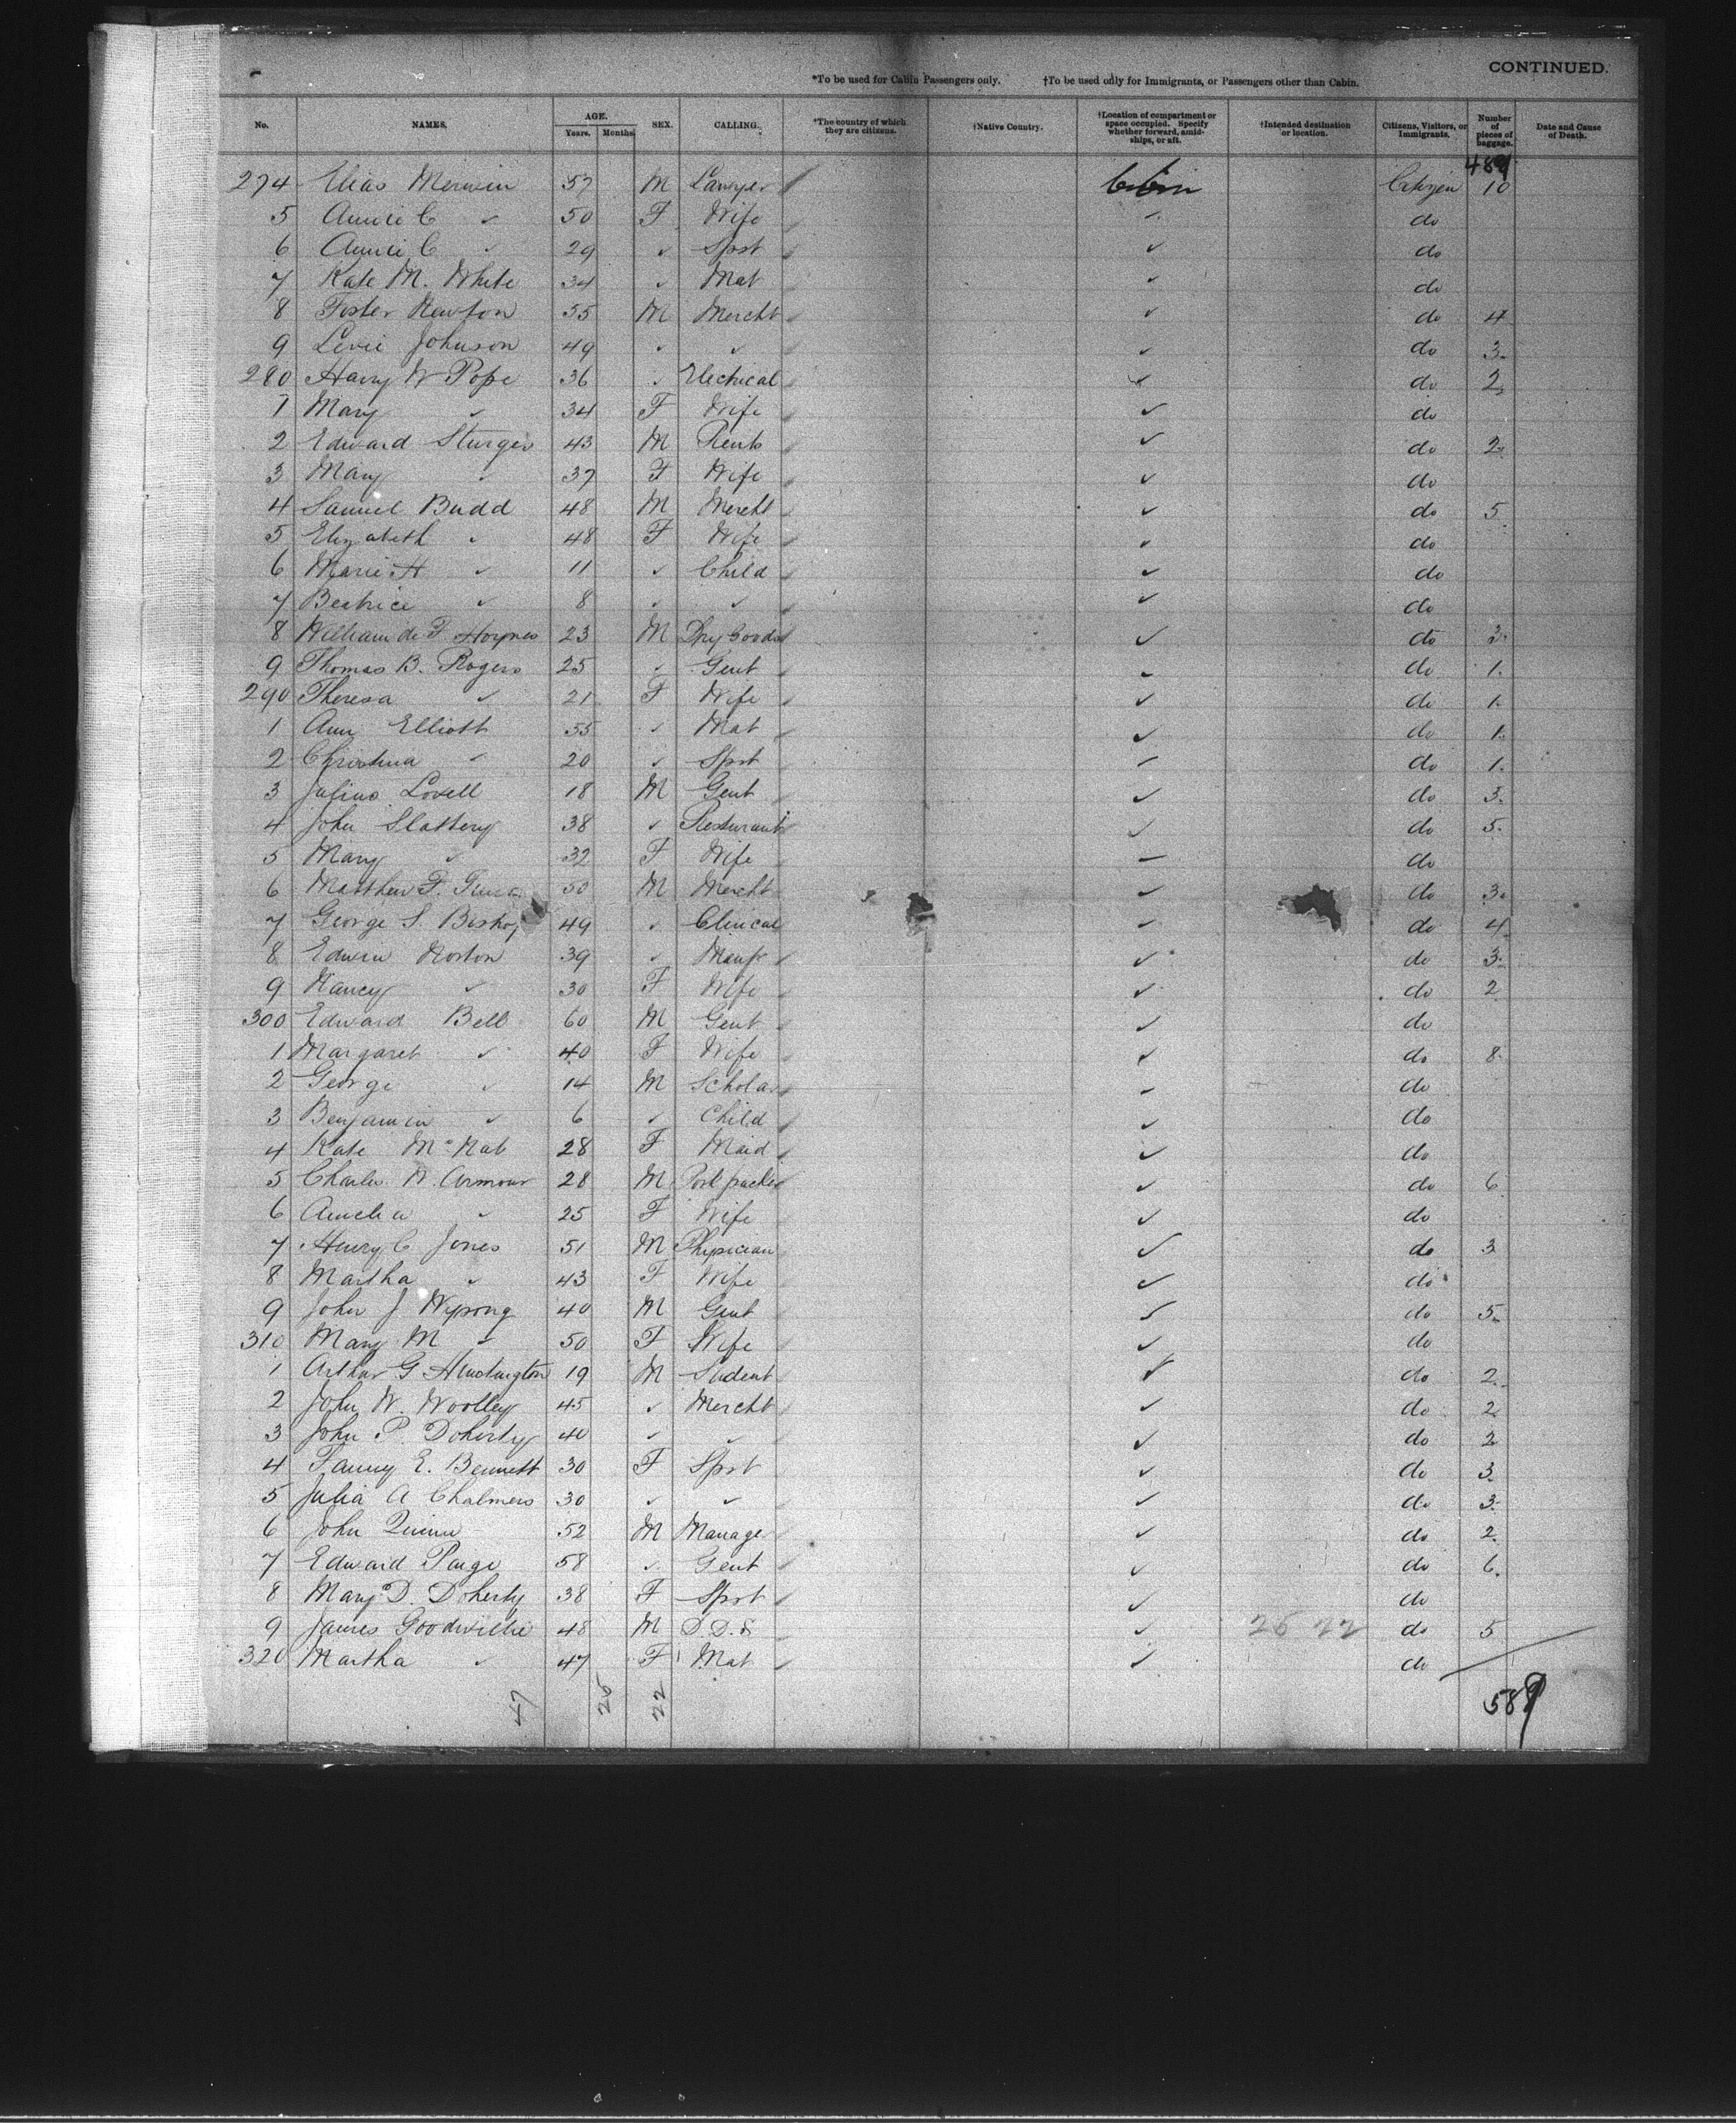 CONTINUED.
*To be used for Cabin Passengers only. †To be used only for Immigrants, or Passengers other than Cabin.
No. NAMES. AGE. Years. Months. SEX. CALLING. *The country of which they are citizens. †Native Country. †Location of compartment or space occupied. Specify whether forward, amid-ships, or aft. †Intended destination or location. Citizens, Visitors, or Immigrants. Number of pieces of baggage. Date and Cause of Death.
489
274 Elias Merwin 57 M Lawyer Cabin Citizen 10
5 Annie C ✓ 50 F Wife ✓ do
6 Annie C ✓ 29 ✓ Spst ✓ do
7 Kate M. White 34 ✓ Mat ✓ do
8 Foster Newton 55 M Mercht ✓ do 4
9 Levie Johnson 49 ✓ ✓ ✓ do 3
280 Harry W Pope 36 ✓ Electrical ✓ do 2
1 Mary ✓ 34 F Wife ✓ do
2 Edward Sturges 43 M ✓ do 2
3 Mary ✓ 37 F Wife ✓ do
4 Samuel Budd 48 M Mercht ✓ do 5
5 Elizabeth ✓ 48 F Wife ✓ do
6 Marie H ✓ 11 ✓ Child ✓ do
7 Beatrice ✓ 8 ✓ ✓ ✓ do
8 William de F Haynes 23 M Dry Goods ✓ do 2
9 Thomas B. Rogers 25 ✓ Gent ✓ do 1
290 Theresa ✓ 21 F Wife ✓ do 1
1 Ann Elliott 55 ✓ Mat ✓ do 1
2 Christina ✓ 20 ✓ Spst ✓ do 1
3 Julius Lovell 18 M Gent ✓ do 3
4 John Slattery 38 ✓ Restaurant ✓ do 5
5 Mary ✓ 32 F Wife ✓ do
6 Matthew F. 50 M Mercht ✓ do 3
7 George S. Bishop 49 ✓ Clerical ✓ do 4
8 Edwin Norton 39 ✓ Manfr ✓ do 3
9 Nancy ✓ 30 F Wife ✓ do 2
300 Edward Bell 60 M Gent ✓ do
1 Margaret ✓ 40 F Wife ✓ do 8
2 George ✓ 14 M Scholar ✓ do
3 Benjamin ✓ 6 ✓ Child ✓ do
4 Kate McNab 28 F Maid ✓ do
5 Charles W. Armour 28 M Pork packer ✓ do 6
6 Amelia ✓ 25 F Wife ✓ do
7 Henry C Jones 51 M Physician ✓ do 3
8 Martha ✓ 43 F Wife ✓ do
9 John J Wysong 40 M Gent ✓ do 5
310 Mary M ✓ 50 F Wife ✓ do
1 Arthur G Huntington 19 M Student ✓ do 2
2 John W. Woolley 45 ✓ Mercht ✓ do 2
3 John P. Doherty 40 ✓ ✓ ✓ do 2
4 Fanny E. Bennett 30 F Spst ✓ do 3
5 Julia A Chalmers 30 ✓ ✓ ✓ do 3
6 John Quinn 52 M Manage ✓ do 2
7 Edward Paige 58 ✓ Gent ✓ do 6
8 Mary D. Doherty 38 F Spst ✓ do
9 James Goodwillie 48 M D.D.S ✓ 26 22 do 5
320 Martha ✓ 47 F Mat ✓ do
47 26 22 589